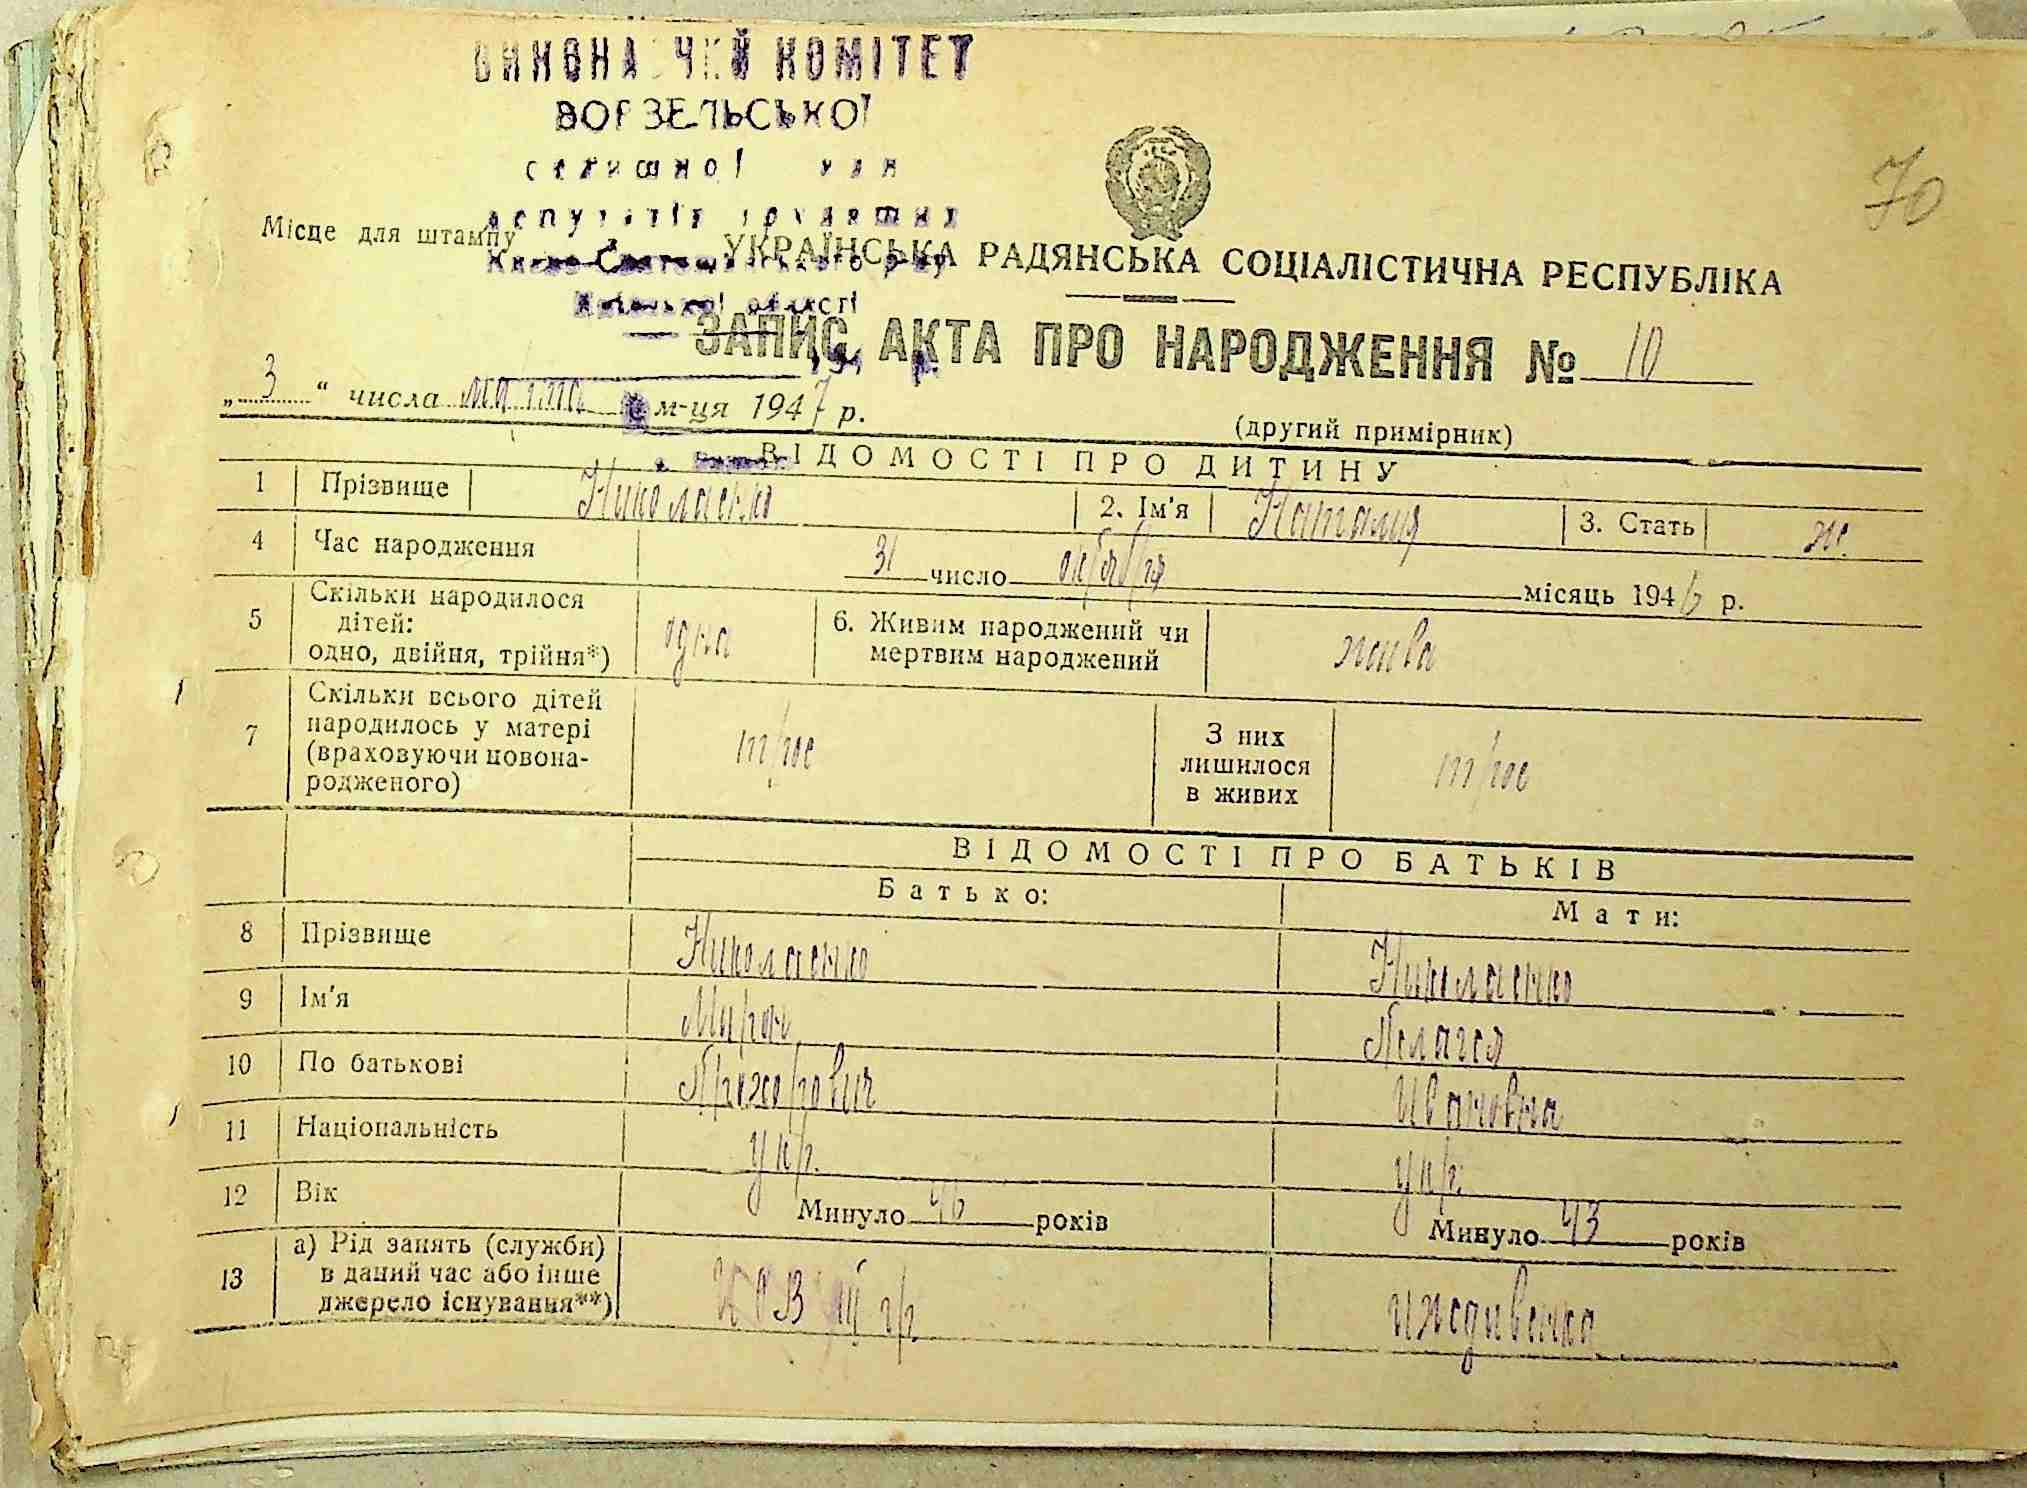 70
ВИКОНАВЧИЙ КОМІТЕТ
ВОРЗЕЛЬСЬКОЇ
селищної ради
депутатів трудящих
Києво-Святошинського р-ну
Київської області
Місце для штампу
УКРАЇНСЬКА РАДЯНСЬКА СОЦІАЛІСТИЧНА РЕСПУБЛІКА
ЗАПИС АКТА ПРО НАРОДЖЕННЯ № 10
„3“ числа марта м-ця 1947 р.
(другий примірник)
ВІДОМОСТІ ПРО ДИТИНУ
1 Прізвище Николаенко 2. Ім'я Наталия 3. Стать ж.
4 Час народження 31 число октября місяць 1946 р.
5 Скільки народилося
дітей:
одно, двійня, трійня*) одна 6. Живим народжений чи
мертвим народжений жива
7 Скільки всього дітей
народилось у матері
(враховуючи новона-
родженого) трое З них
лишилося
в живих трое
ВІДОМОСТІ ПРО БАТЬКІВ
Батько: Мати:
8 Прізвище Николаенко Николаенко
9 Ім'я Мирон Пелагея
10 По батькові Прохорович Ивановна
11 Національність укр. укр.
12 Вік Минуло 46 років Минуло 43 років
13 а) Рід занять (служби)
в даний час або інше
джерело існування**) ИОВ III гр иждивенка